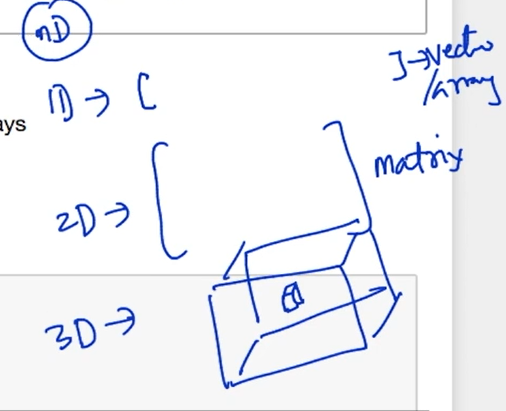 nD
1D → [ ] → vector
/array
ays
2D → [ ] matrix
3D →